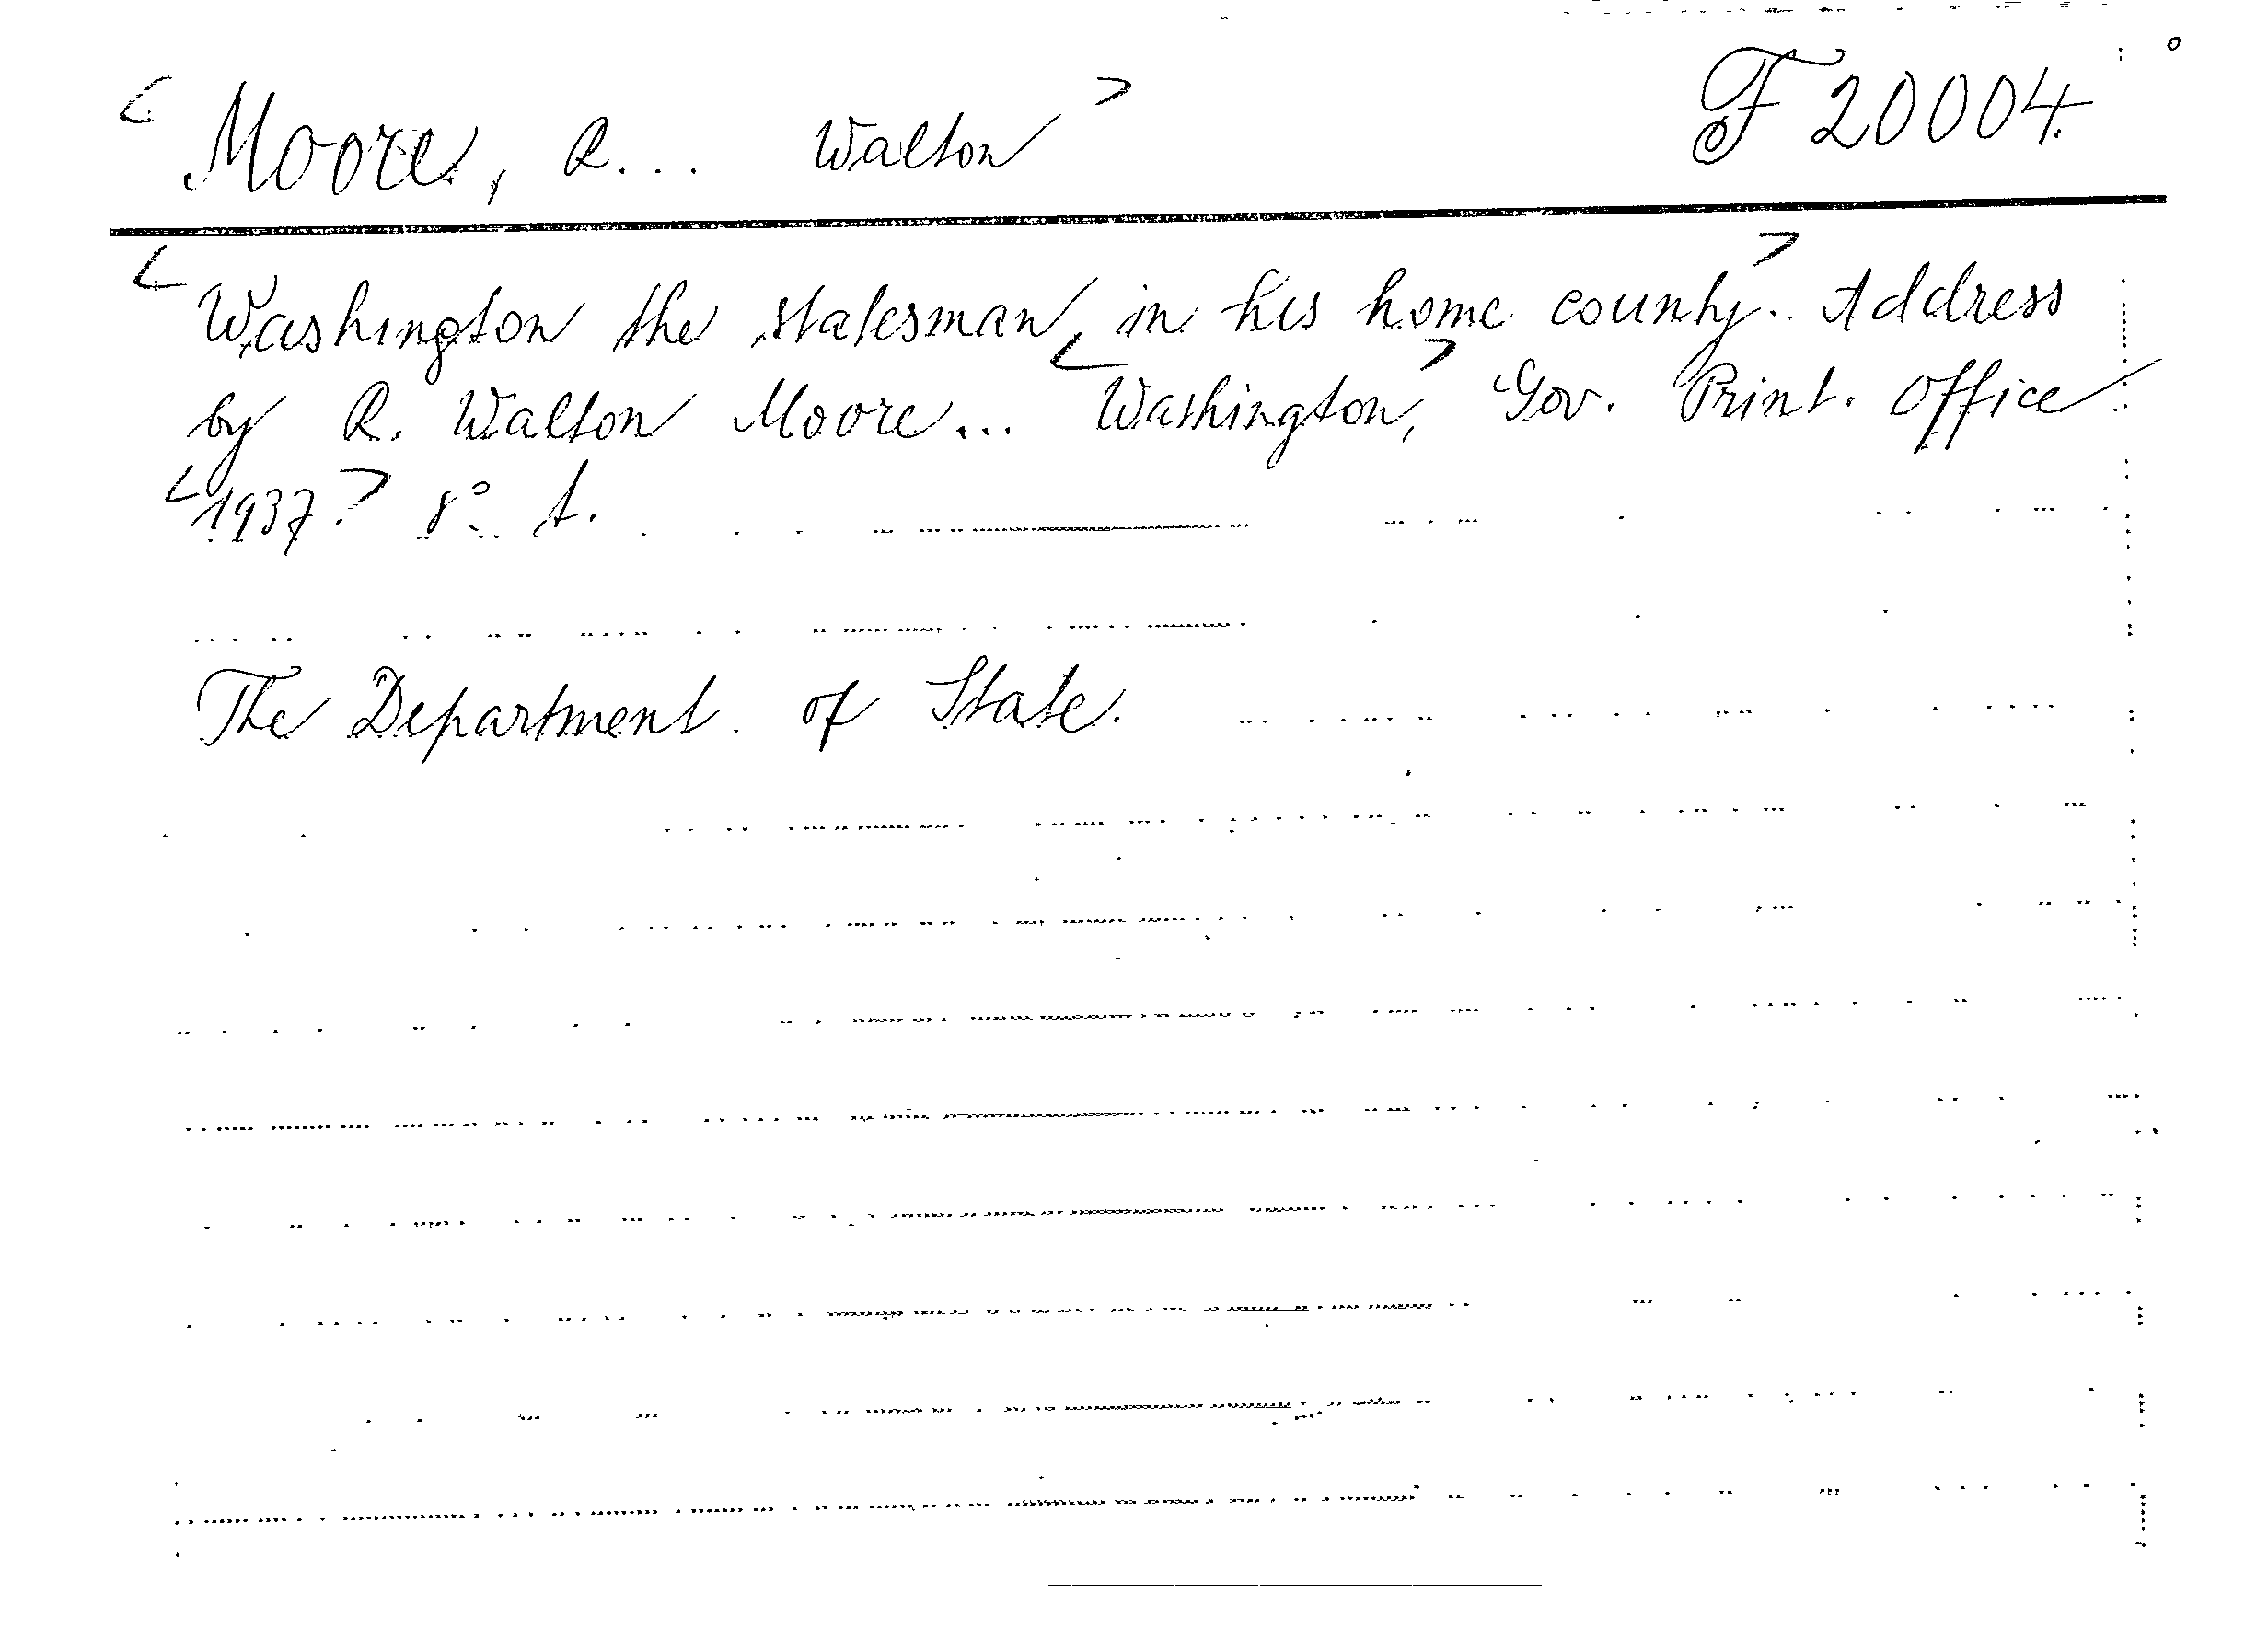 < Moore, R... Walton > F 20004.
< Washington the statesman, in his home county >. Address
by R. Walton Moore... < Washington, > Gov. Print. Office
< 1937. > 8° A.
The Department of State.